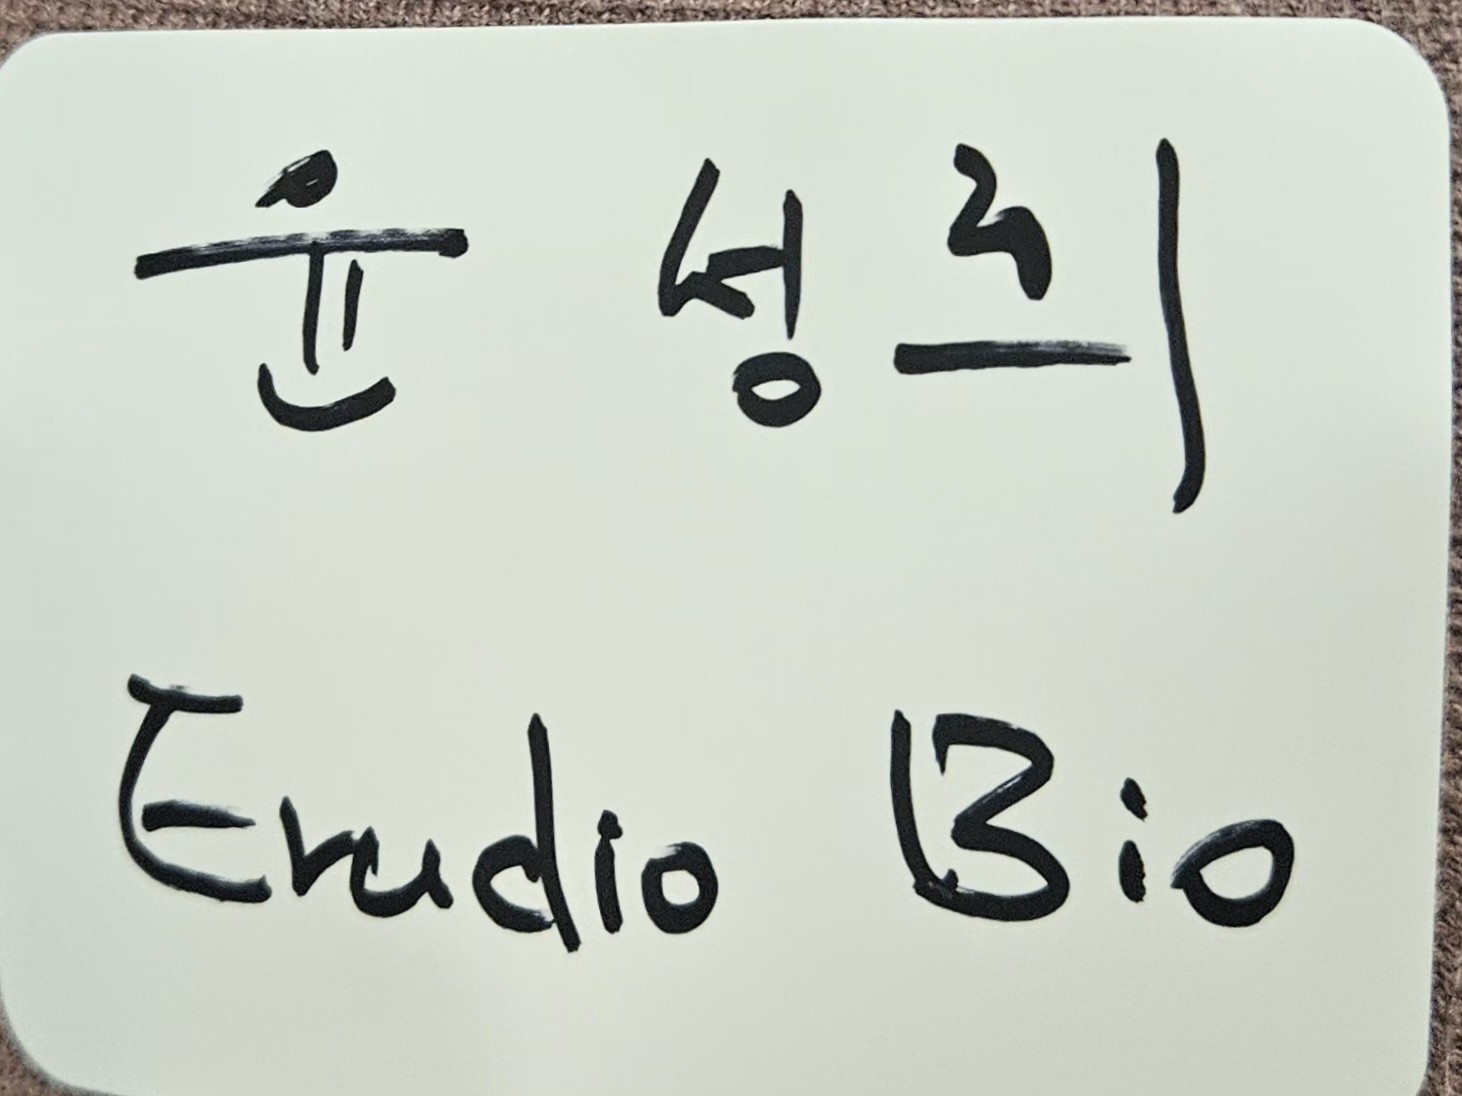 윤 성 희
Erudio Bio